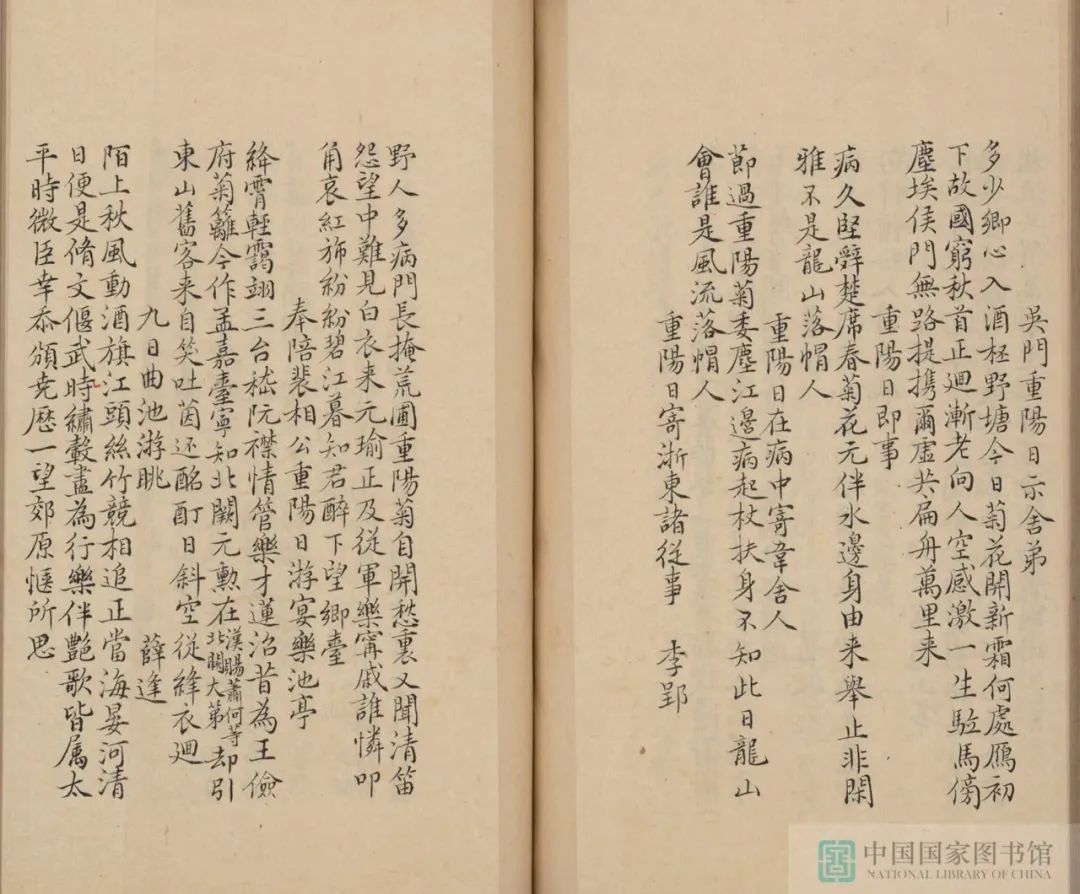 吳門重陽日示舍弟
多少鄉心入酒柸野塘今日菊花開新霜何處鴈初
下故國窮秋首正迴漸老向人空感激一生駈馬傍
塵埃侯門無路提携爾虛共扁舟萬里来
重陽日即事
病久堅辭楚席春菊花元伴水邊身由来舉止非閑
雅不是龍山落帽人
重陽日在病中寄韋舍人
節過重陽菊委塵江邊病起杖扶身不知此日龍山
會誰是風流落帽人
重陽日寄浙東諸從事 李郢
野人多病門長掩荒圃重陽菊自開愁裏又聞清笛
怨望中難見白衣来元瑜正及從軍樂甯戚誰憐叩
角哀紅斾紛紛碧江暮知君醉下望鄉臺
奉陪裴相公重陽日游宴樂池亭
絳霄輕靄翊三台嵇阮襟情管樂才蓮沼昔為王儉
府菊籬今作孟嘉臺寧知北闕元勳在漢賜蕭何等北闕大第却引
東山舊客来自笑吐茵还酩酊日斜空從絳衣迴
九日曲池游眺 薛逢
陌上秋風動酒旗江頭絲竹競相追正當海晏河清
日便是脩文偃武時繡轂盡為行樂伴艷歌皆属太
平時微臣幸忝頒堯歷一望郊原愜所思
中国国家图书馆
NATIONAL LIBRARY OF CHINA